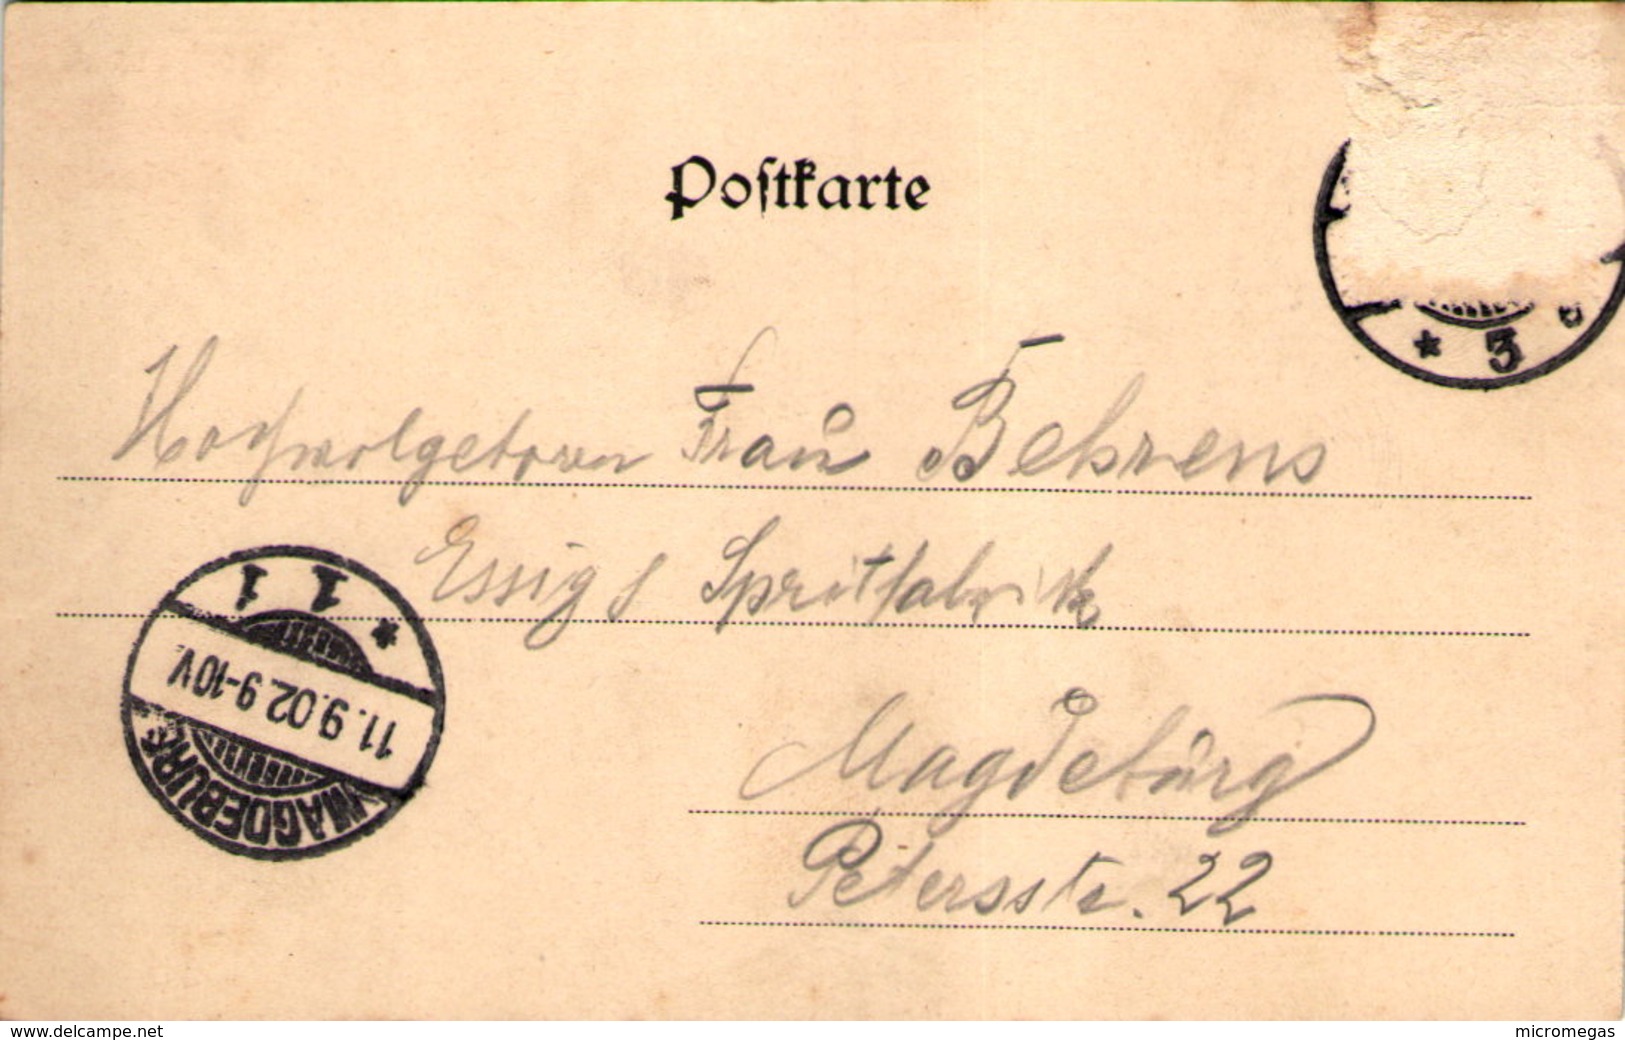 Postkarte
* 3
Hochwolgeborn Frau Behrens
Essig & Spritfabrik
Magdeburg
Petersstr. 22
MAGDEBURG
11.9.02.9-10V
* 1 1
www.delcampe.net
micromegas